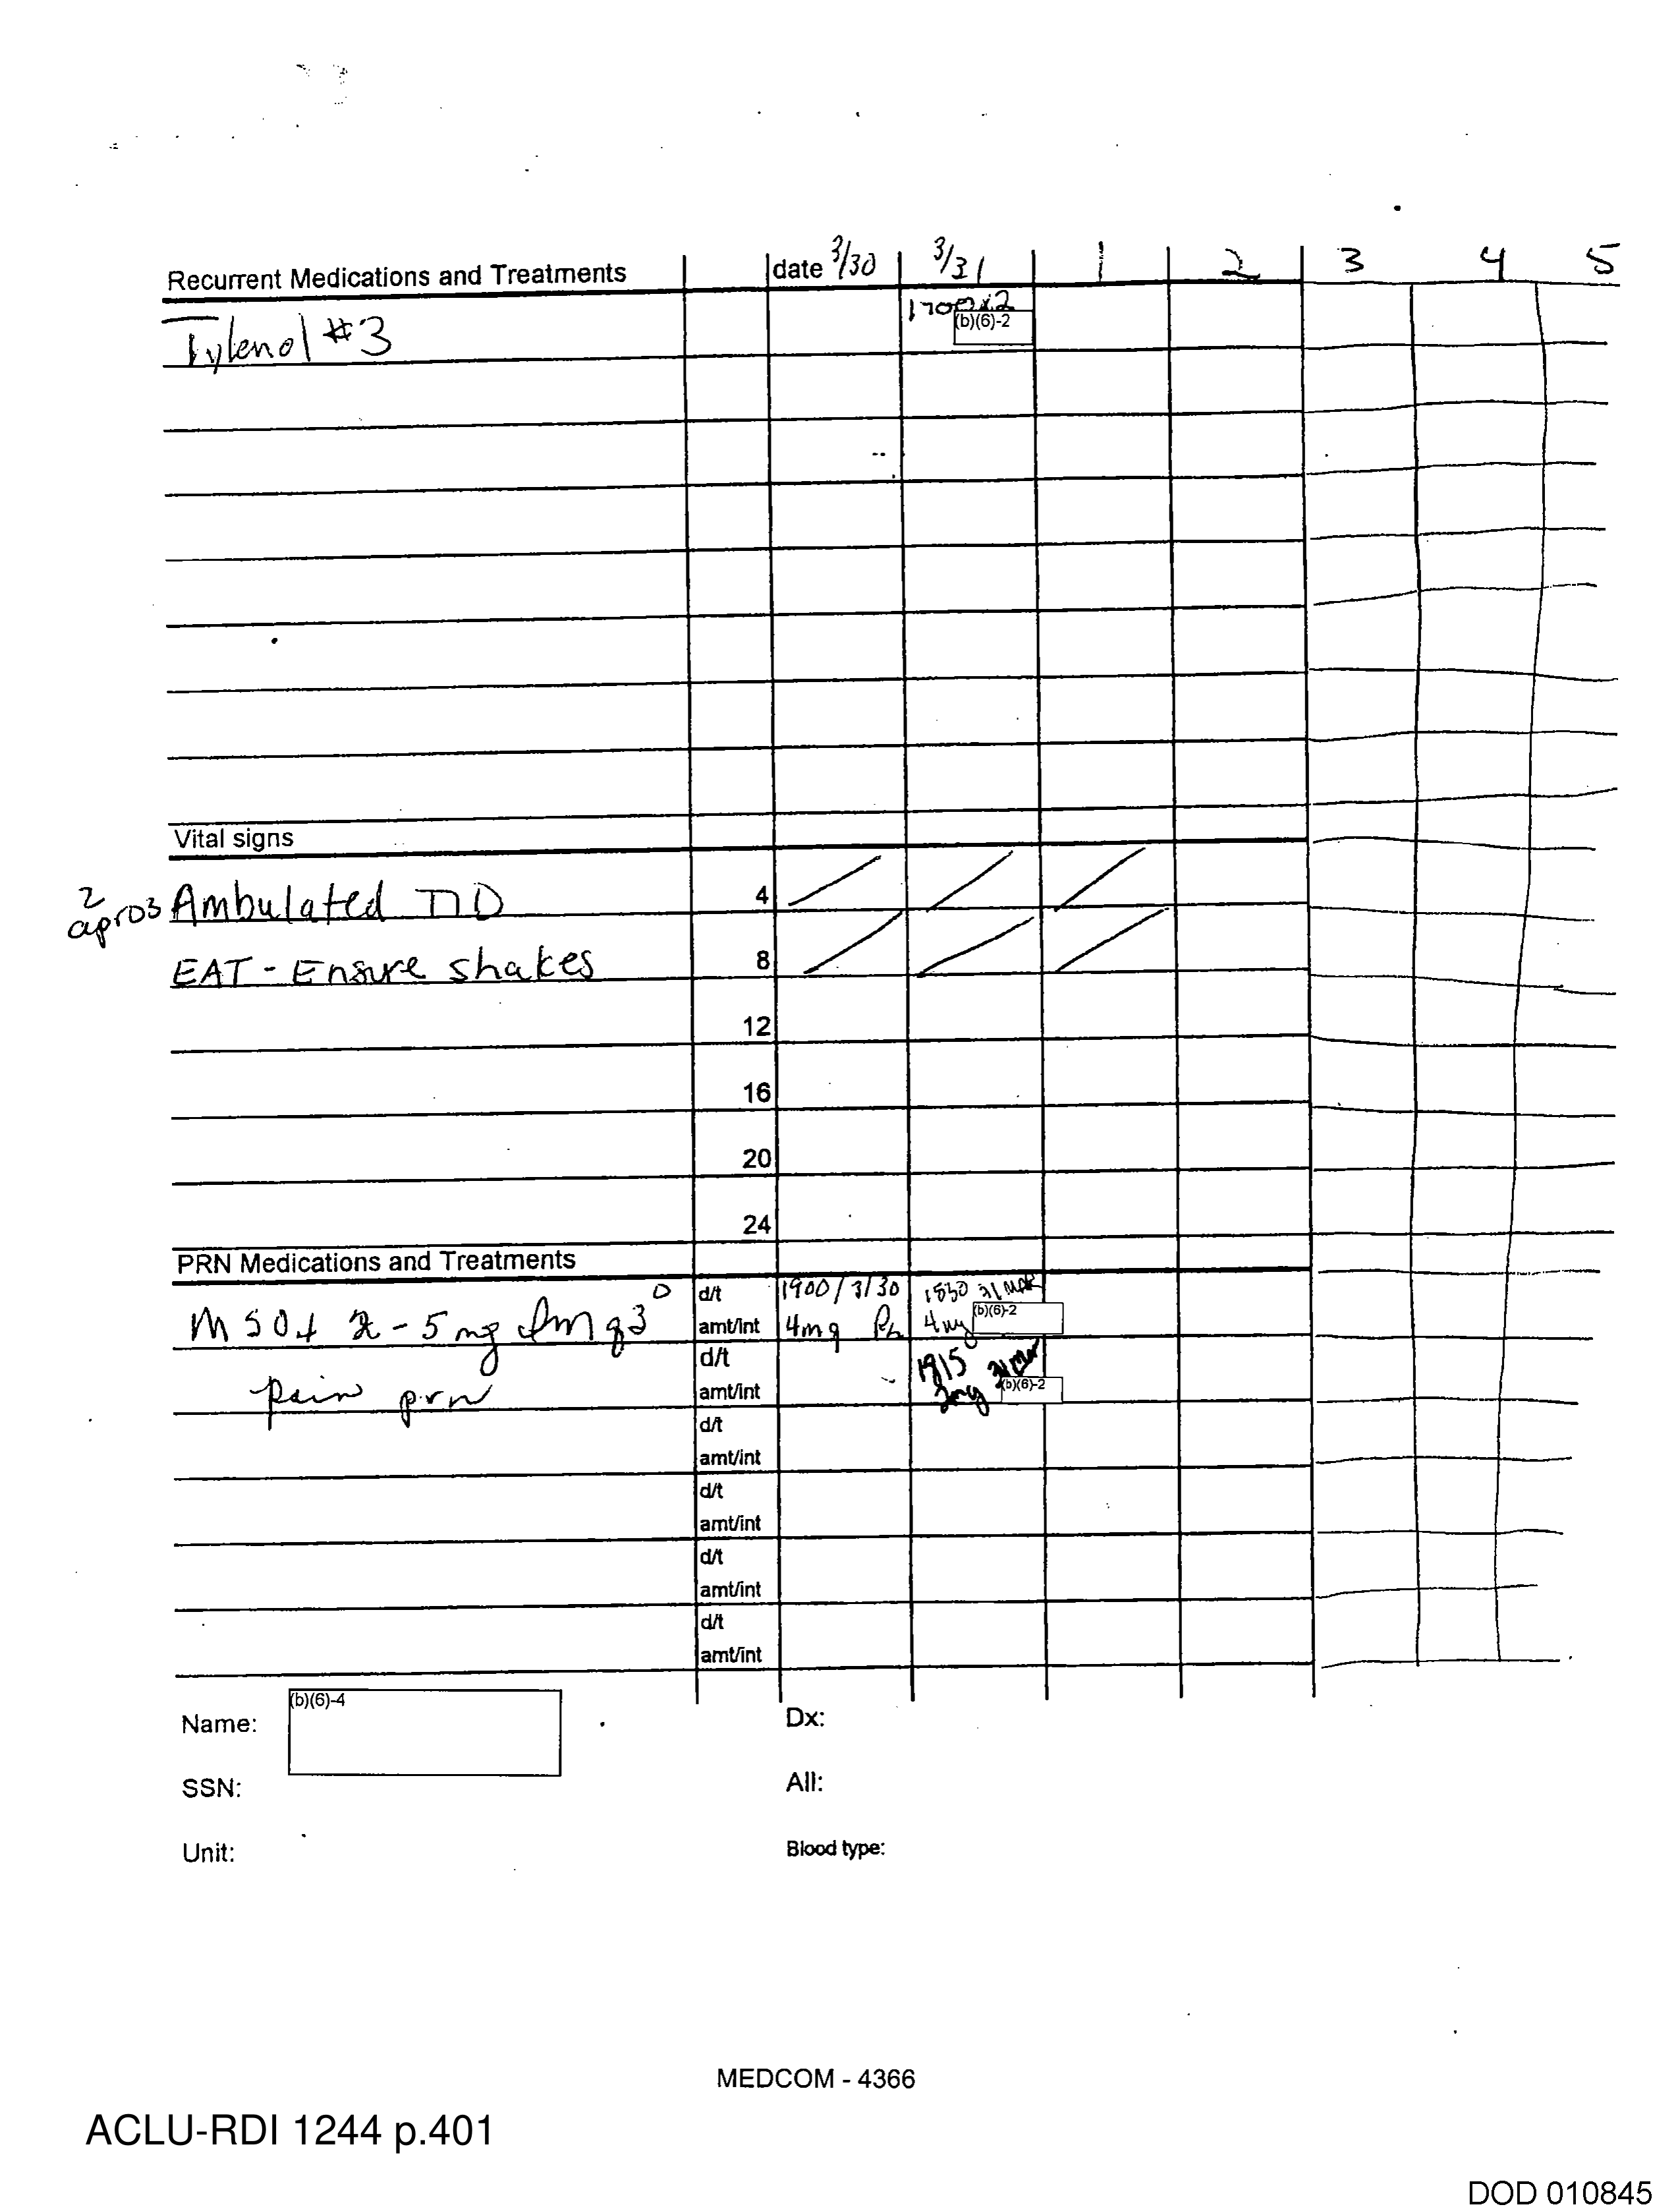 Recurrent Medications and Treatments date 3/30 3/31 1 2 3 4 5
Tylenol #3 1700x2
(b)(6)-2
Vital signs
2 apr03 Ambulated TID 4
EAT - Ensure shakes 8
12
16
20
24
PRN Medications and Treatments
d/t 1900/3/30 1830 31 MAR
MSO4 2-5mg IM q3° amt/int 4mg 4mg (b)(6)-2
d/t 1915 31 Mar
pain prn amt/int 2mg (b)(6)-2
d/t
amt/int
d/t
amt/int
d/t
amt/int
d/t
amt/int
(b)(6)-4
Name: Dx:
SSN: All:
Unit: Blood type:
MEDCOM - 4366
ACLU-RDI 1244 p.401
DOD 010845